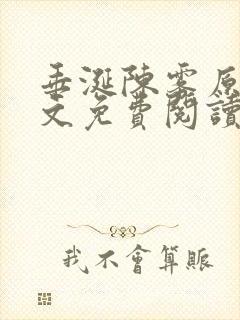 垂涎陳雾原
文免費閱讀
我不會算賬